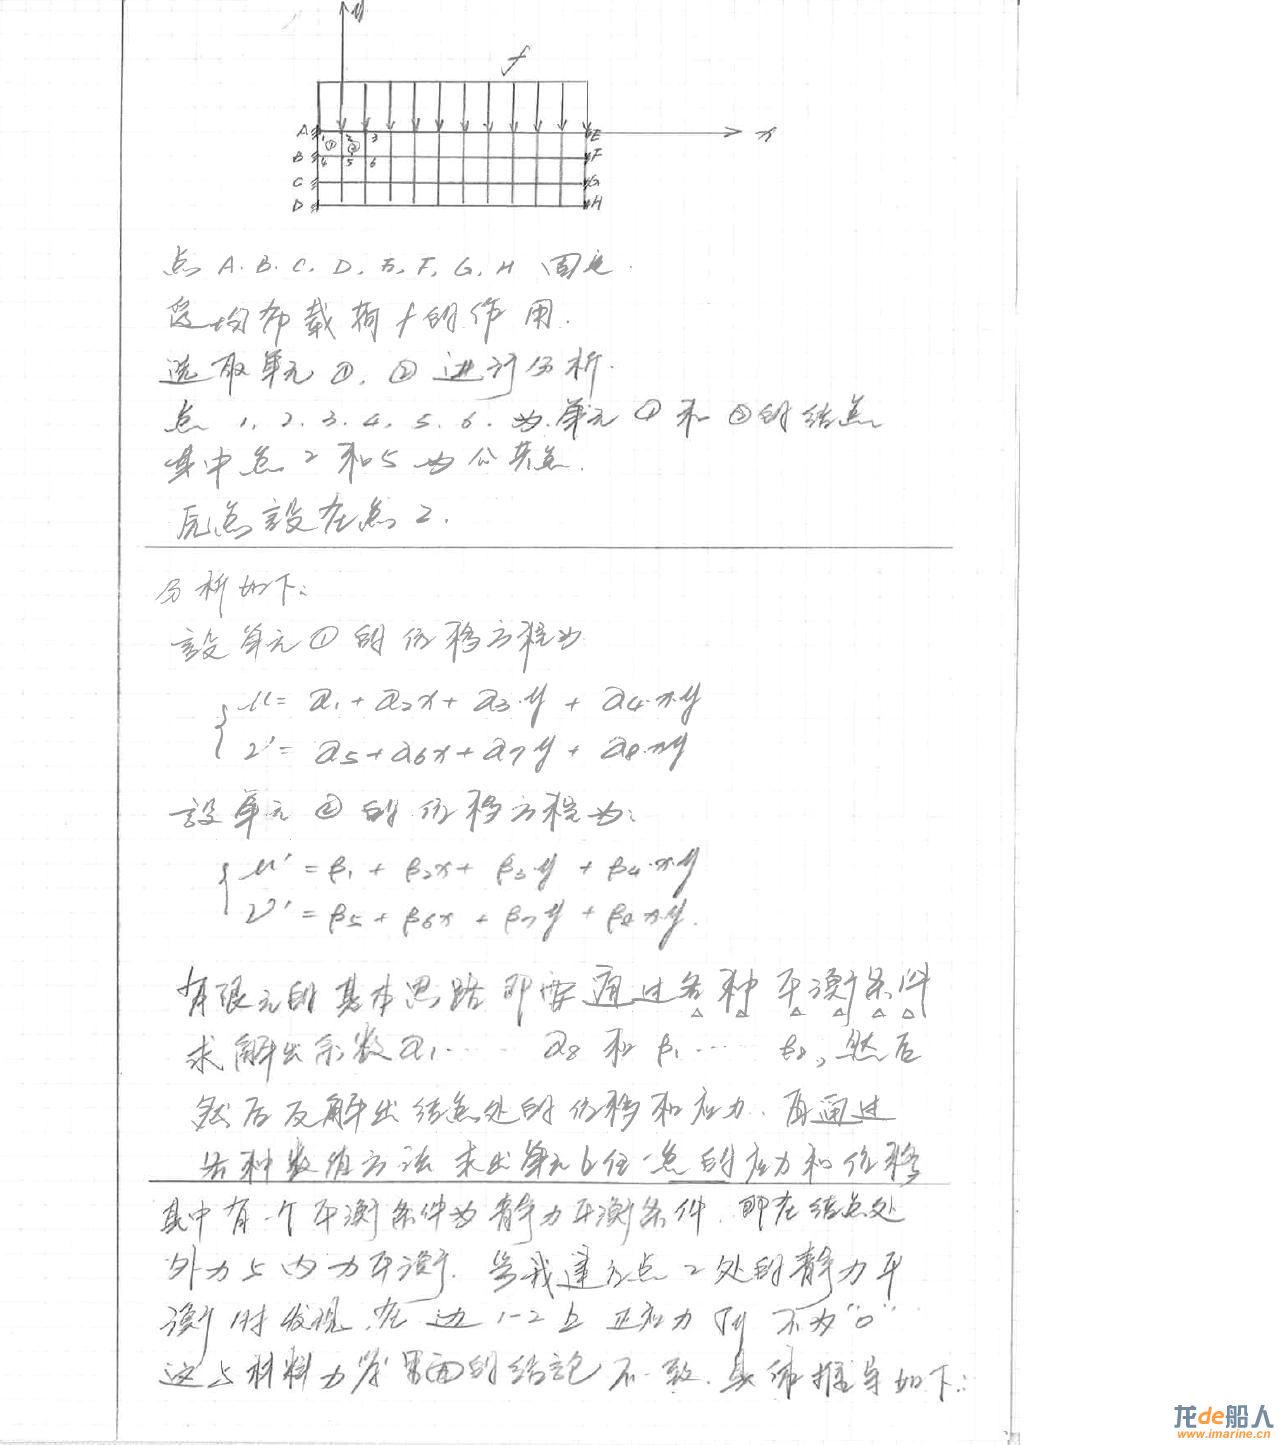 y
f
A 1 2 3 E x
① ②
B 4 5 6 F
C G
D H
点 A. B. C. D. E. F. G. H 固定.
受均布载荷 f 的作用.
选取单元①, ②进行分析.
点 1, 2. 3. 4. 5. 6. 为单元①和②的结点
其中点 2 和 5 为公共点.
原点設在点 2.
分析如下:
設单元①的位移方程为
u = a1 + a2x + a3·y + a4·xy
v' = a5 + a6x + a7y + a8·xy
設单元②的位移方程为:
u' = β1 + β2x + β3·y + β4·xy
v' = β5 + β6x + β7y + β8xy.
有限元的基本思路即要通过各种平衡条件
求解出系数a1 ...... a8 和 β1 ...... β8, 然后
然后反解出结点处的位移和应力. 再通过
各种数值方法求出单元上任一点的应力和位移
其中有一个平衡条件为静力平衡条件. 即在结点处
外力与内力平衡. 当我建立点 2 处的静力平
衡时发现, 在边 1-2 上正应力 σy 不为"0"
这与材料力学里面的结論不一致. 具体推导如下:
龙de船人
www.imarine.cn